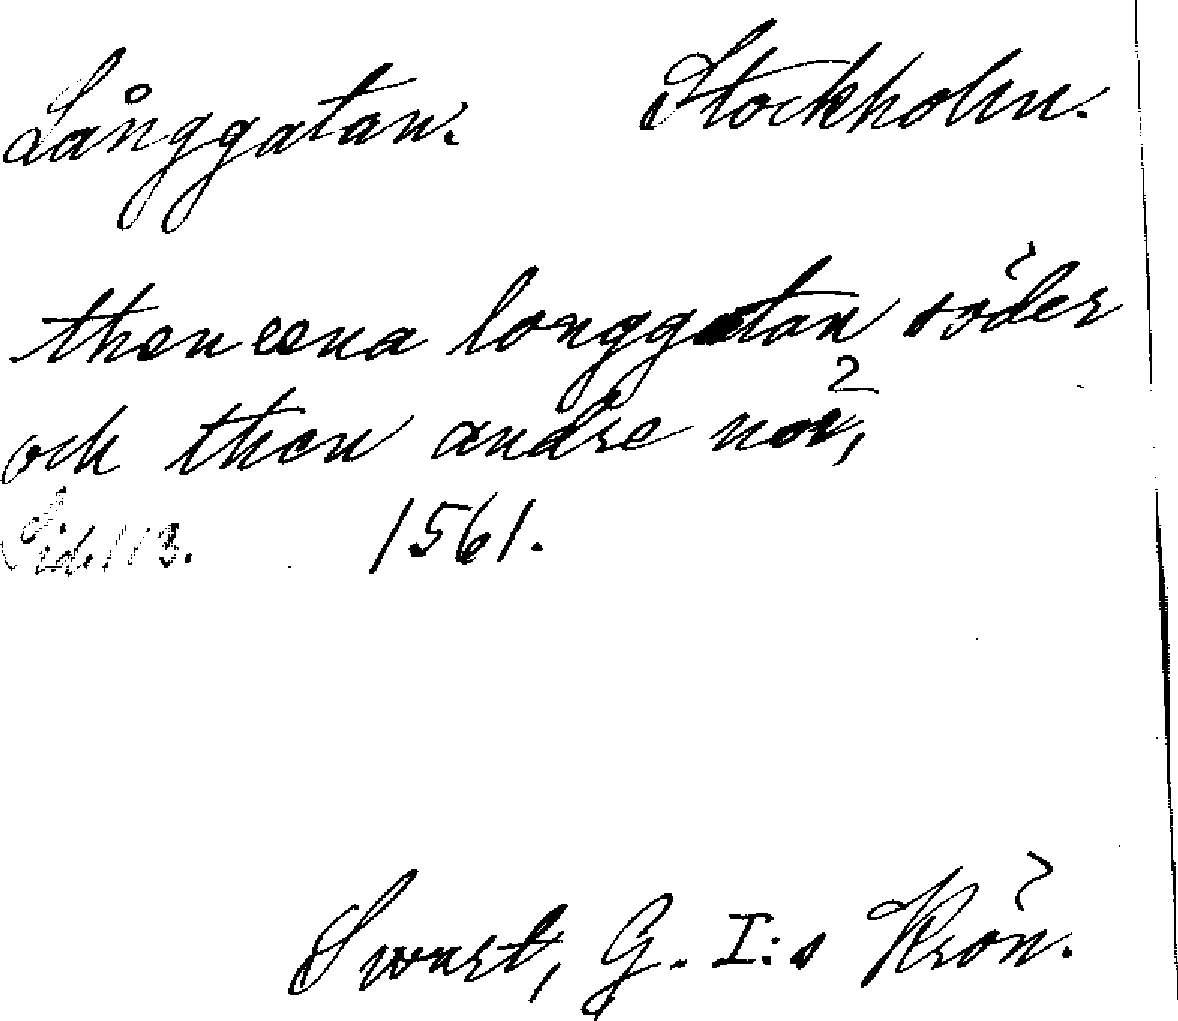 Långgatan. Stockholm.
then eena longgatan söder
och then andre nör,
Sid. 113. 1561.
Swart, G. I:s Krön.